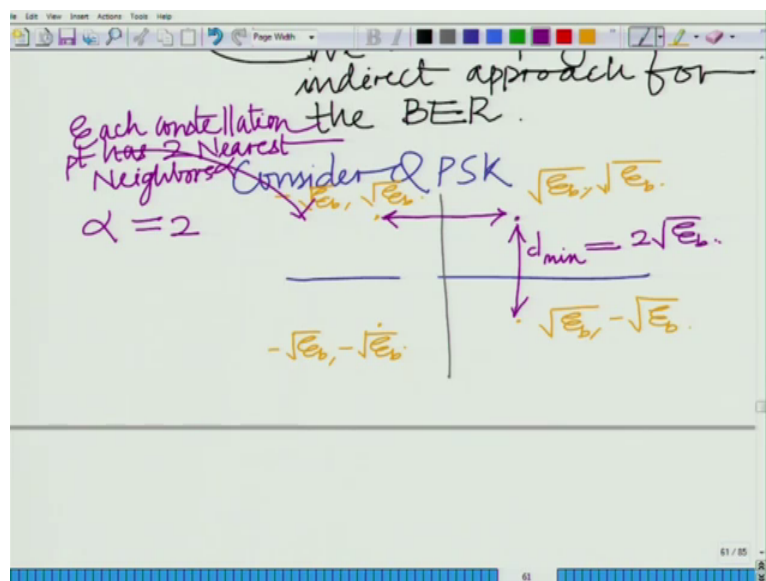 File Edit View Insert Actions Tools Help
Page Width
B I
indirect approach for
the BER.
Each constellation
pt has 2 Nearest
Neighbors
Consider QPSK
α = 2
-√Eb, √Eb.
√Eb, √Eb.
dmin = 2√Eb.
-√Eb, -√Eb.
√Eb, -√Eb.
61 / 85
61